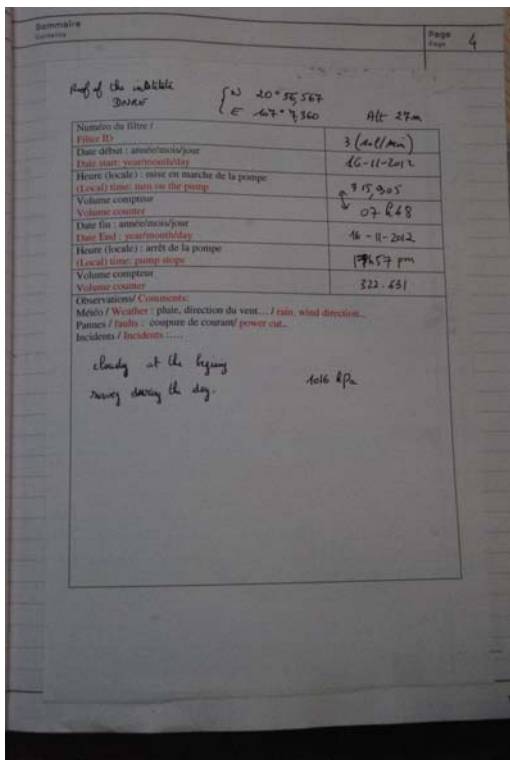 Sommaire
Contents
Page
Page 4
Roof of the institute
DNRE
N 20° 56,567
E 107° 7,360
Alt 27m
Numéro du filtre /
Filter ID
3 (10l/min)
Date début : année/mois/jour
Date start: year/month/day
16-11-2012
Heure (locale) : mise en marche de la pompe
(Local) time: turn on the pump
315,905
Volume compteur
Volume counter
07h48
Date fin : année/mois/jour
Date End : year/month/day
16-11-2012
Heure (locale) : arrêt de la pompe
(Local) time: pump stops
17h57 pm
Volume compteur
Volume counter
322.631
Observations/ Comments:
Météo / Weather : pluie, direction du vent… / rain, wind direction..
Pannes / faults : coupure de courant/ power cut..
Incidents / Incidents :…..
cloudy at the
1016 hPa
during the day.